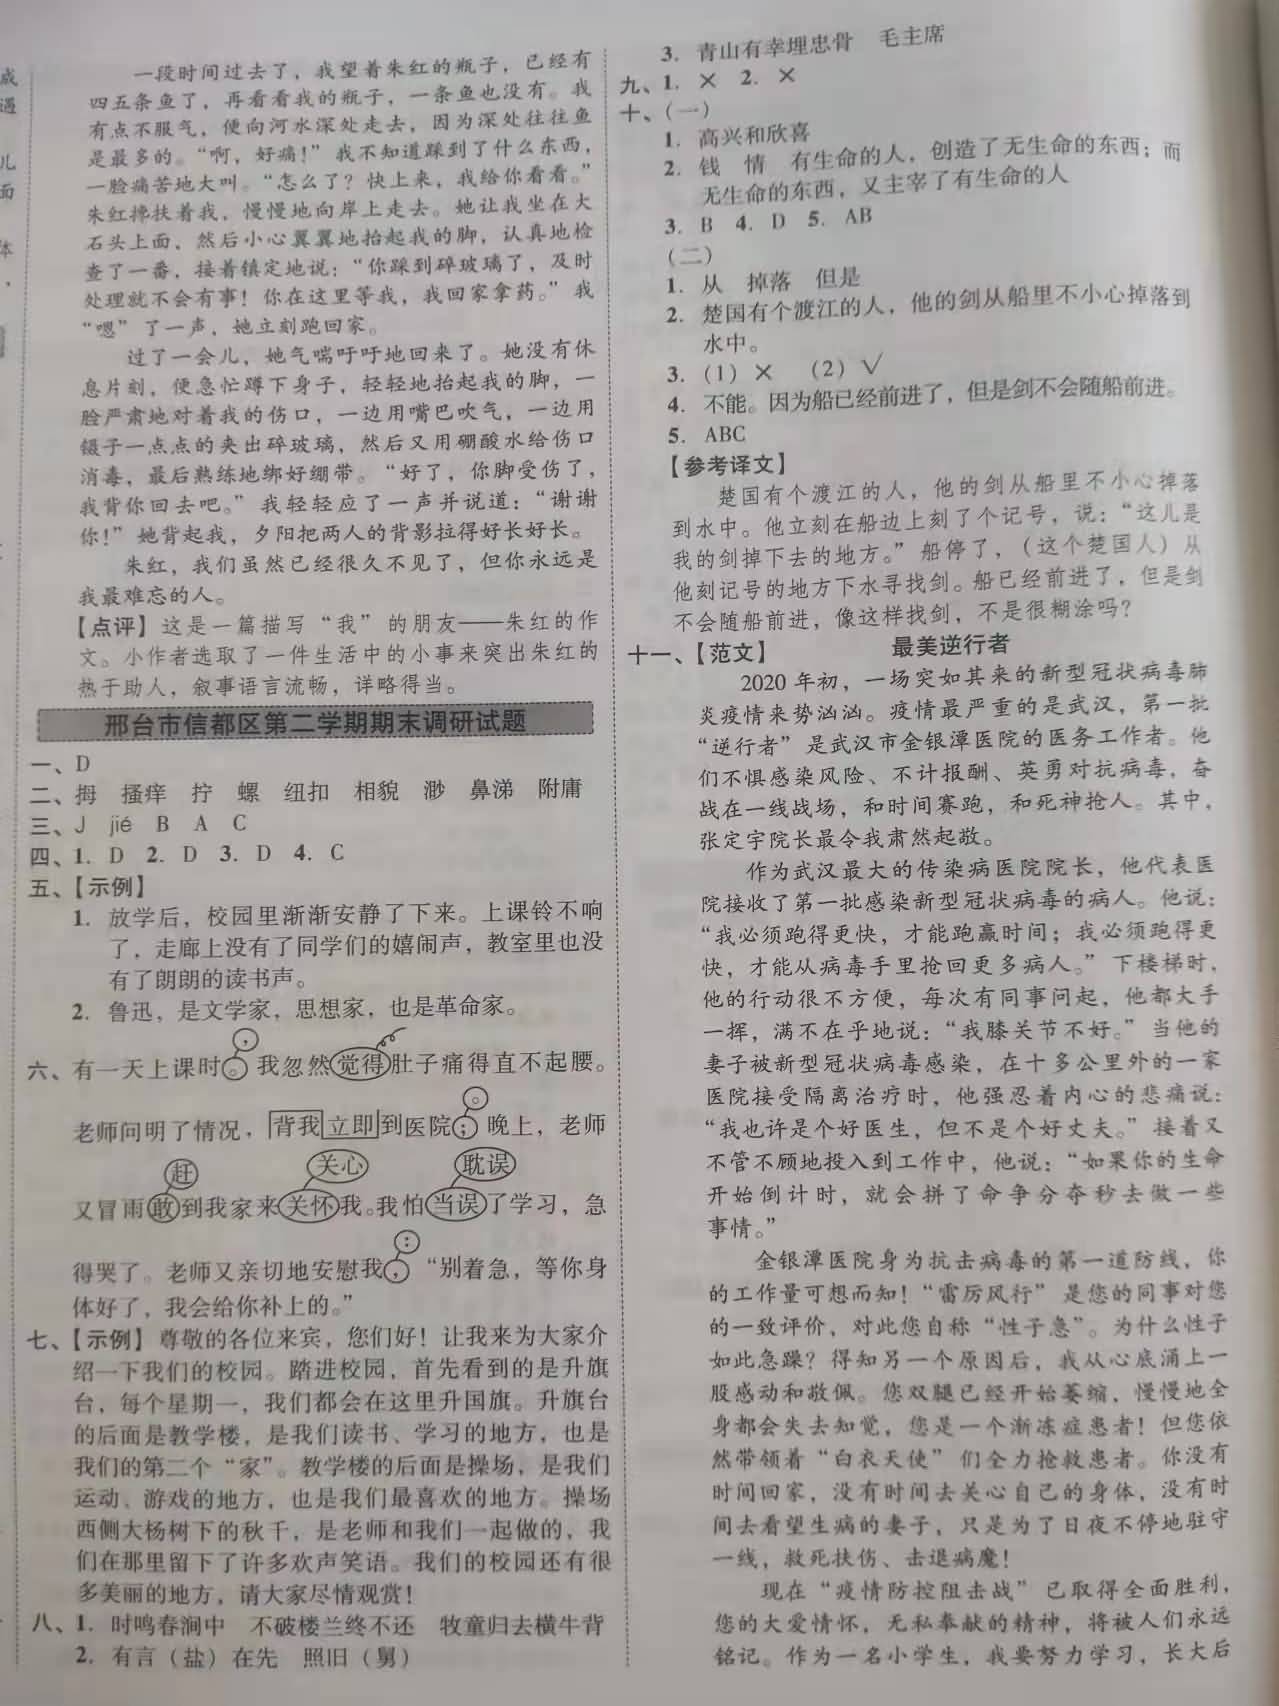 成
遇
儿
面
体
一段时间过去了，我望着朱红的瓶子，已经有
四五条鱼了，再看看我的瓶子，一条鱼也没有。我
有点不服气，便向河水深处走去，因为深处往往鱼
是最多的。“啊，好痛！”我不知道踩到了什么东西，
一脸痛苦地大叫。“怎么了？快上来，我给你看看。”
朱红搀扶着我，慢慢地向岸上走去。她让我坐在大
石头上面，然后小心翼翼地抬起我的脚，认真地检
查了一番，接着镇定地说：“你踩到碎玻璃了，及时
处理就不会有事！你在这里等我，我回家拿药。”我
“嗯”了一声，她立刻跑回家。
过了一会儿，她气喘吁吁地回来了。她没有休
息片刻，便急忙蹲下身子，轻轻地抬起我的脚，一
脸严肃地对着我的伤口，一边用嘴巴吹气，一边用
镊子一点点的夹出碎玻璃，然后又用硼酸水给伤口
消毒，最后熟练地绑好绷带。“好了，你脚受伤了，
我背你回去吧。”我轻轻应了一声并说道：“谢谢
你！”她背起我，夕阳把两人的背影拉得好长好长。
朱红，我们虽然已经很久不见了，但你永远是
我最难忘的人。
【点评】这是一篇描写“我”的朋友——朱红的作
文。小作者选取了一件生活中的小事来突出朱红的
热于助人，叙事语言流畅，详略得当。
邢台市信都区第二学期期末调研试题
一、D
二、拇 搔痒 拧 螺 纽扣 相貌 渺 鼻涕 附庸
三、J jié B A C
四、1. D 2. D 3. D 4. C
五、【示例】
1. 放学后，校园里渐渐安静了下来。上课铃不响
了，走廊上没有了同学们的嬉闹声，教室里也没
有了朗朗的读书声。
2. 鲁迅，是文学家，思想家，也是革命家。
，
六、有一天上课时。我忽然觉得肚子痛得直不起腰。
。
老师问明了情况，背我立即到医院；晚上，老师
赶 关心 耽误
又冒雨敢到我家来关怀我。我怕当误了学习，急
：
得哭了。老师又亲切地安慰我，“别着急，等你身
体好了，我会给你补上的。”
七、【示例】尊敬的各位来宾，您们好！让我来为大家介
绍一下我们的校园。踏进校园，首先看到的是升旗
台，每个星期一，我们都会在这里升国旗。升旗台
的后面是教学楼，是我们读书、学习的地方，也是
我们的第二个“家”。教学楼的后面是操场，是我们
运动、游戏的地方，也是我们最喜欢的地方。操场
西侧大杨树下的秋千，是老师和我们一起做的，我
们在那里留下了许多欢声笑语。我们的校园还有很
多美丽的地方，请大家尽情观赏！
八、1. 时鸣春涧中 不破楼兰终不还 牧童归去横牛背
2. 有言（盐）在先 照旧（舅）
3. 青山有幸埋忠骨 毛主席
九、1. × 2. ×
十、（一）
1. 高兴和欣喜
2. 钱 情 有生命的人，创造了无生命的东西；而
无生命的东西，又主宰了有生命的人
3. B 4. D 5. AB
（二）
1. 从 掉落 但是
2. 楚国有个渡江的人，他的剑从船里不小心掉落到
水中。
3.（1）× （2）√
4. 不能。因为船已经前进了，但是剑不会随船前进。
5. ABC
【参考译文】
楚国有个渡江的人，他的剑从船里不小心掉落
到水中。他立刻在船边上刻了个记号，说：“这儿是
我的剑掉下去的地方。”船停了，（这个楚国人）从
他刻记号的地方下水寻找剑。船已经前进了，但是剑
不会随船前进，像这样找剑，不是很糊涂吗？
十一、【范文】 最美逆行者
2020 年初，一场突如其来的新型冠状病毒肺
炎疫情来势汹汹。疫情最严重的是武汉，第一批
“逆行者”是武汉市金银潭医院的医务工作者。他
们不惧感染风险、不计报酬、英勇对抗病毒，奋
战在一线战场，和时间赛跑，和死神抢人。其中，
张定宇院长最令我肃然起敬。
作为武汉最大的传染病医院院长，他代表医
院接收了第一批感染新型冠状病毒的病人。他说：
“我必须跑得更快，才能跑赢时间；我必须跑得更
快，才能从病毒手里抢回更多病人。”下楼梯时，
他的行动很不方便，每次有同事问起，他都大手
一挥，满不在乎地说：“我膝关节不好。”当他的
妻子被新型冠状病毒感染，在十多公里外的一家
医院接受隔离治疗时，他强忍着内心的悲痛说：
“我也许是个好医生，但不是个好丈夫。”接着又
不管不顾地投入到工作中，他说：“如果你的生命
开始倒计时，就会拼了命争分夺秒去做一些
事情。”
金银潭医院身为抗击病毒的第一道防线，你
的工作量可想而知！“雷厉风行”是您的同事对您
的一致评价，对此您自称“性子急”。为什么性子
如此急躁？得知另一个原因后，我从心底涌上一
股感动和敬佩。您双腿已经开始萎缩，慢慢地全
身都会失去知觉，您是一个渐冻症患者！但您依
然带领着“白衣天使”们全力抢救患者。你没有
时间回家，没有时间去关心自己的身体，没有时
间去看望生病的妻子，只是为了日夜不停地驻守
一线，救死扶伤、击退病魔！
现在“疫情防控阻击战”已取得全面胜利，
您的大爱情怀，无私奉献的精神，将被人们永远
铭记。作为一名小学生，我要努力学习，长大后